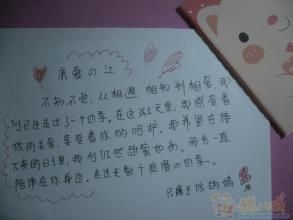 亲爱の江:
不知不觉,从相遇,相知到相爱,我
们已经走过3-4个四季。在这365天里,我感受着
你的关爱,享受着你的呵护,我希望在接
下来的日子里,我们仍然甜蜜如初,我会一直
陪伴在你身边,走过无数个浪漫の四季~。
只属于你的